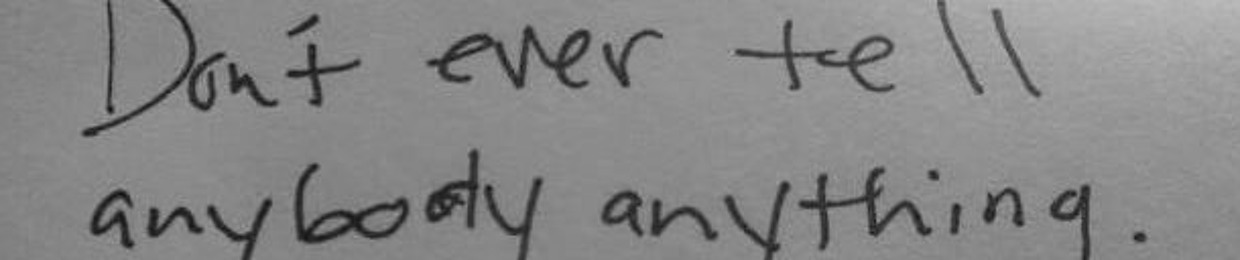 Don't ever tell
anybody anything.